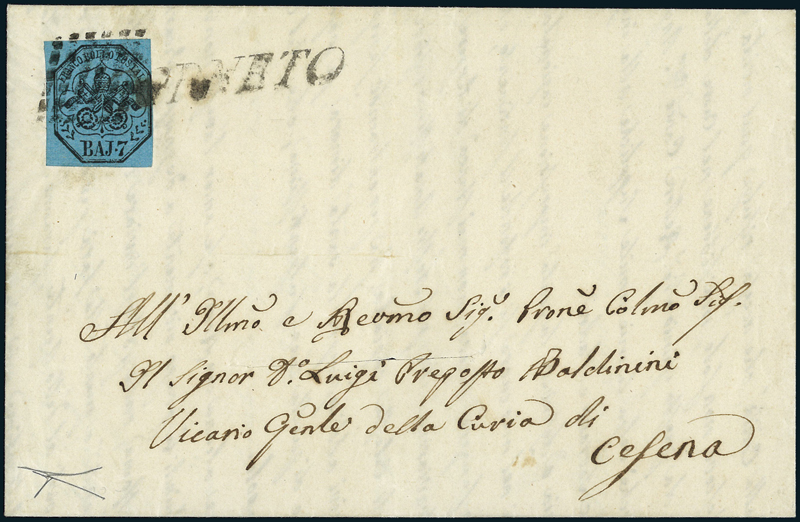 FRANCO BOLLO POSTALE
BAJ·7
ORNETO
All' Illmõ. e Revmo Sig.r Pronẽ Colmõ Sig.
Il Signor D.o Luigi Preposto Baldinini
Vicario Gẽnle della Curia di
Cesena